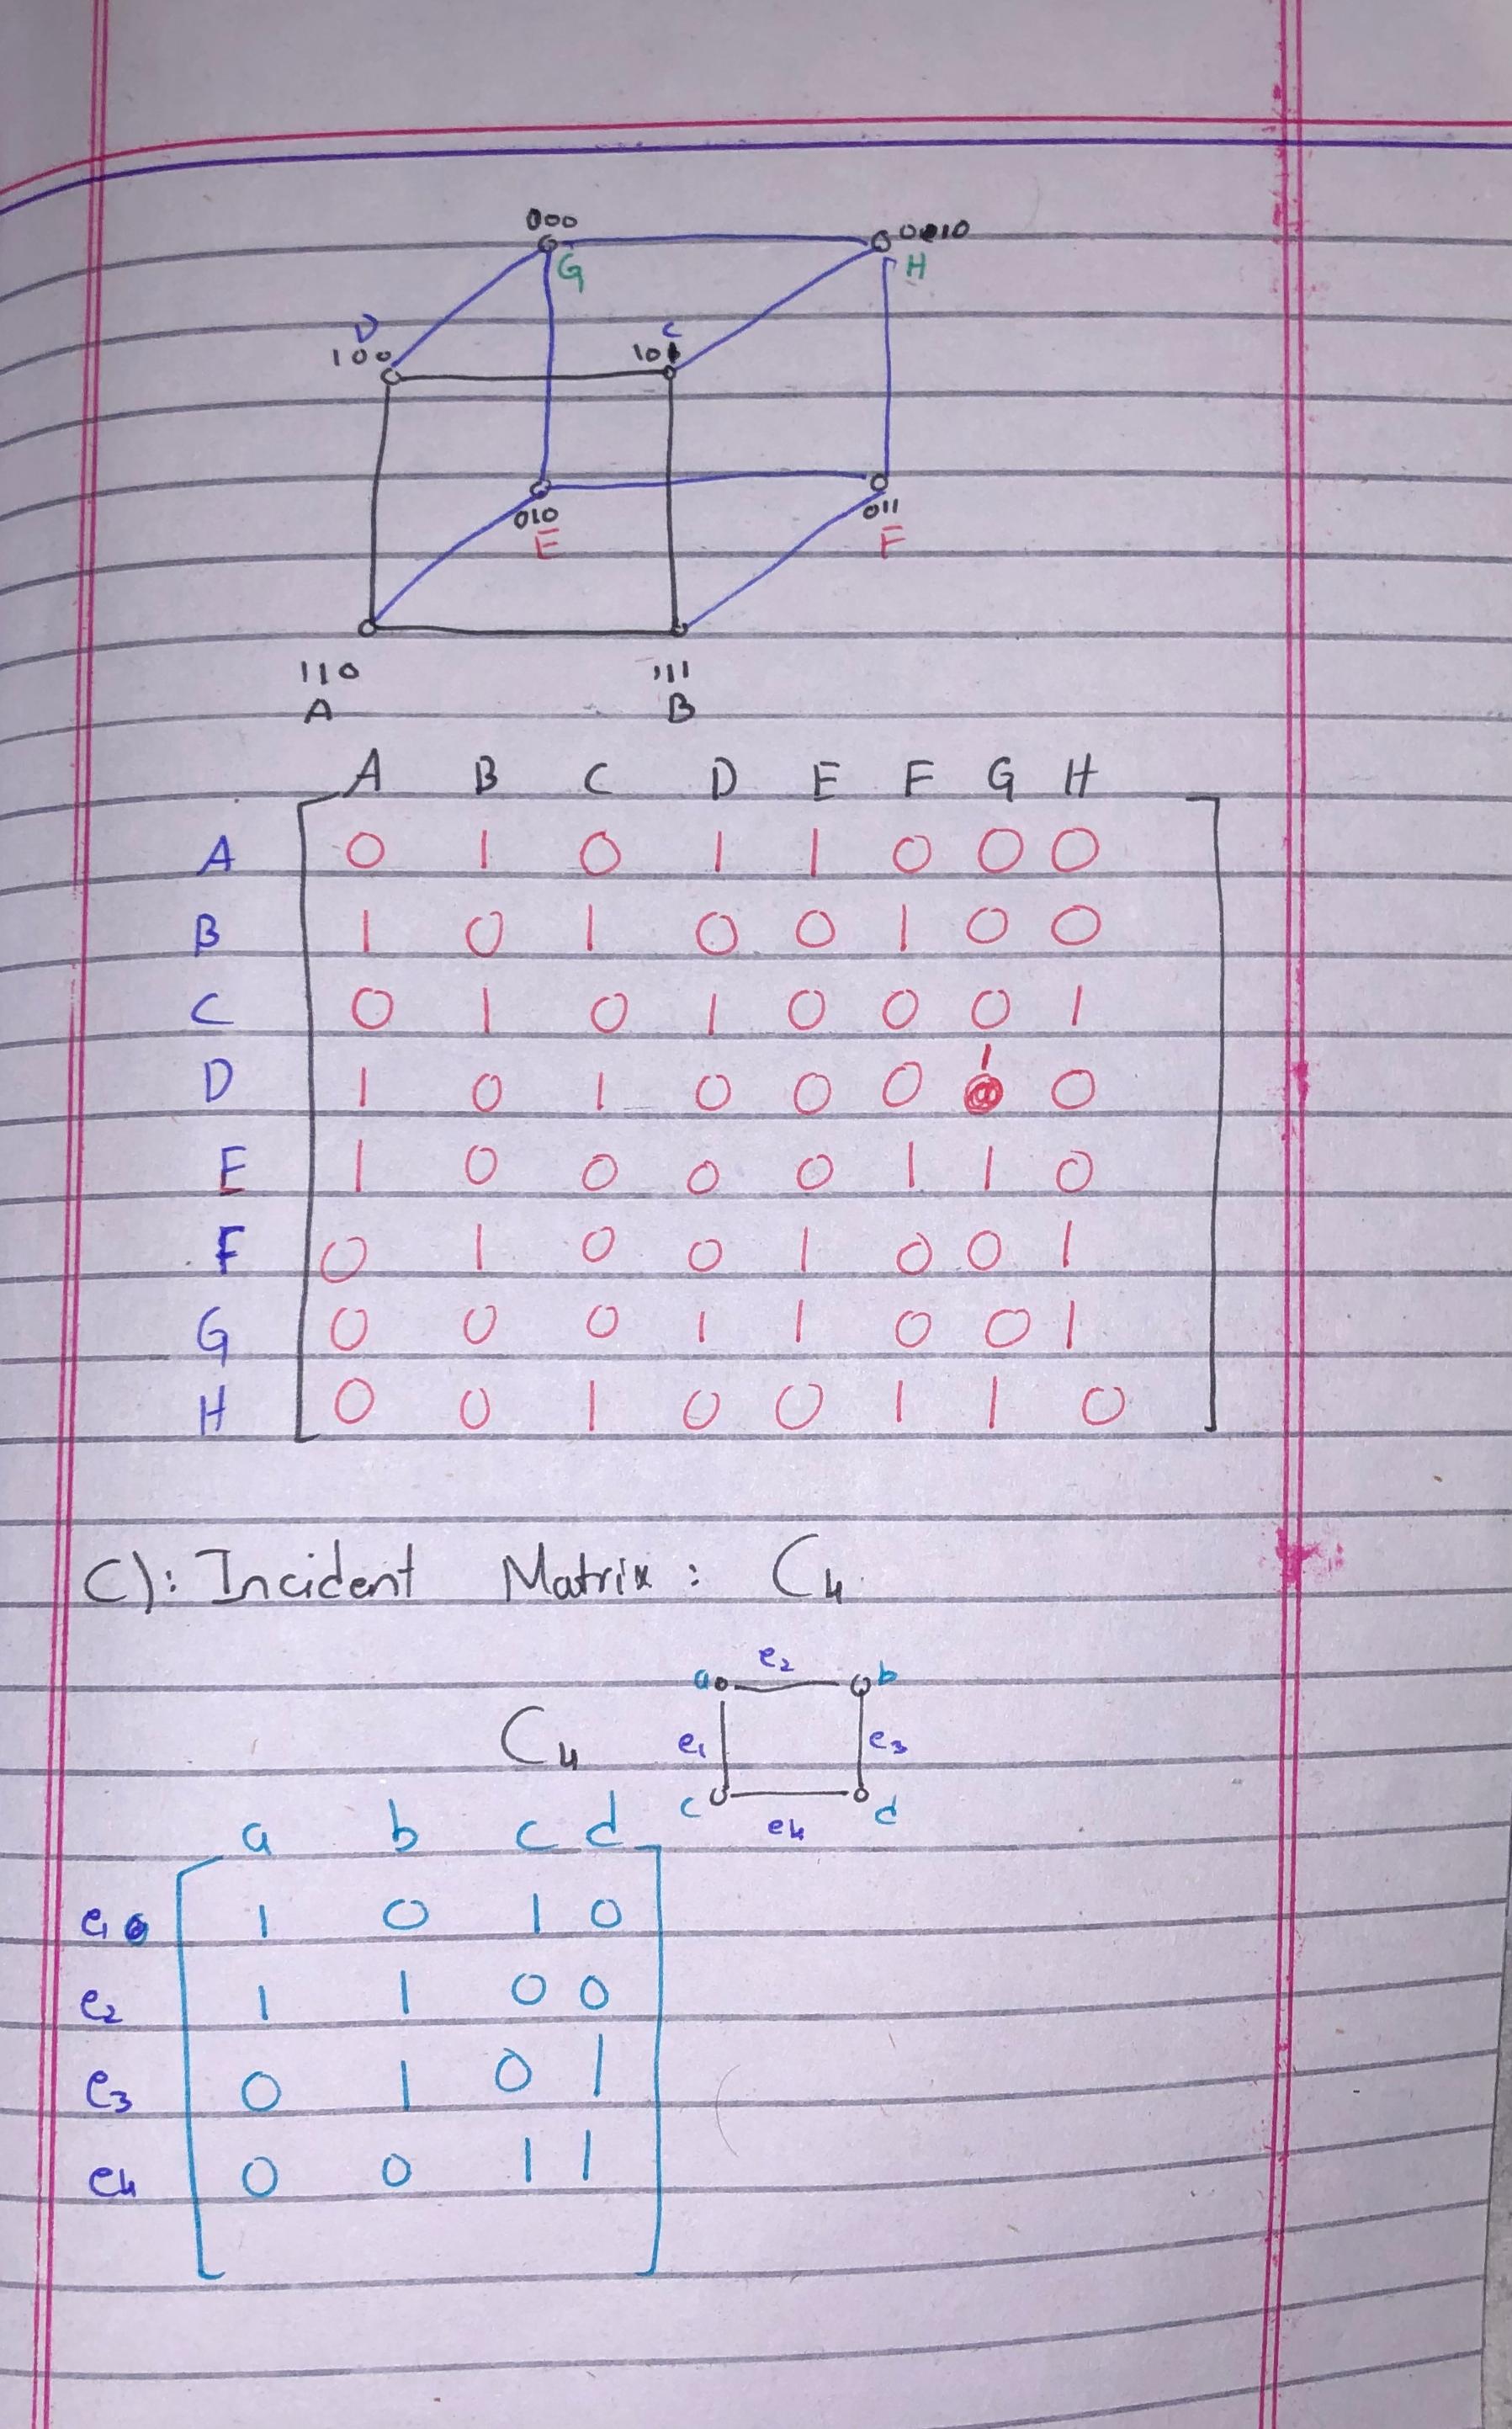 000
G
0010
H
D
100
C
101
010
E
011
F
110
A
111
B
A B C D E F G H
A 0 1 0 1 1 0 0 0
B 1 0 1 0 0 1 0 0
C 0 1 0 1 0 0 0 1
D 1 0 1 0 0 0 1 0
E 1 0 0 0 0 1 1 0
F 0 1 0 0 1 0 0 1
G 0 0 0 1 1 0 0 1
H 0 0 1 0 0 1 1 0
C): Incident Matrix: C4
a e2 b
C4 e1 e3
c e4 d
a b c d
e1 1 0 1 0
e2 1 1 0 0
e3 0 1 0 1
e4 0 0 1 1